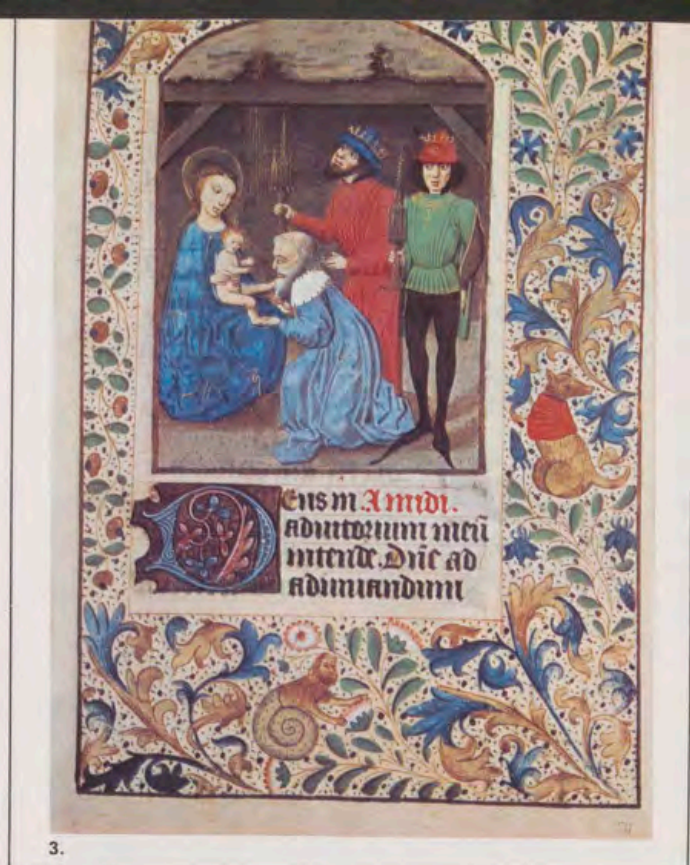 Deus in A midi.
adiutorium meū
intende. Dn̄e ad
adiuuandum
3.